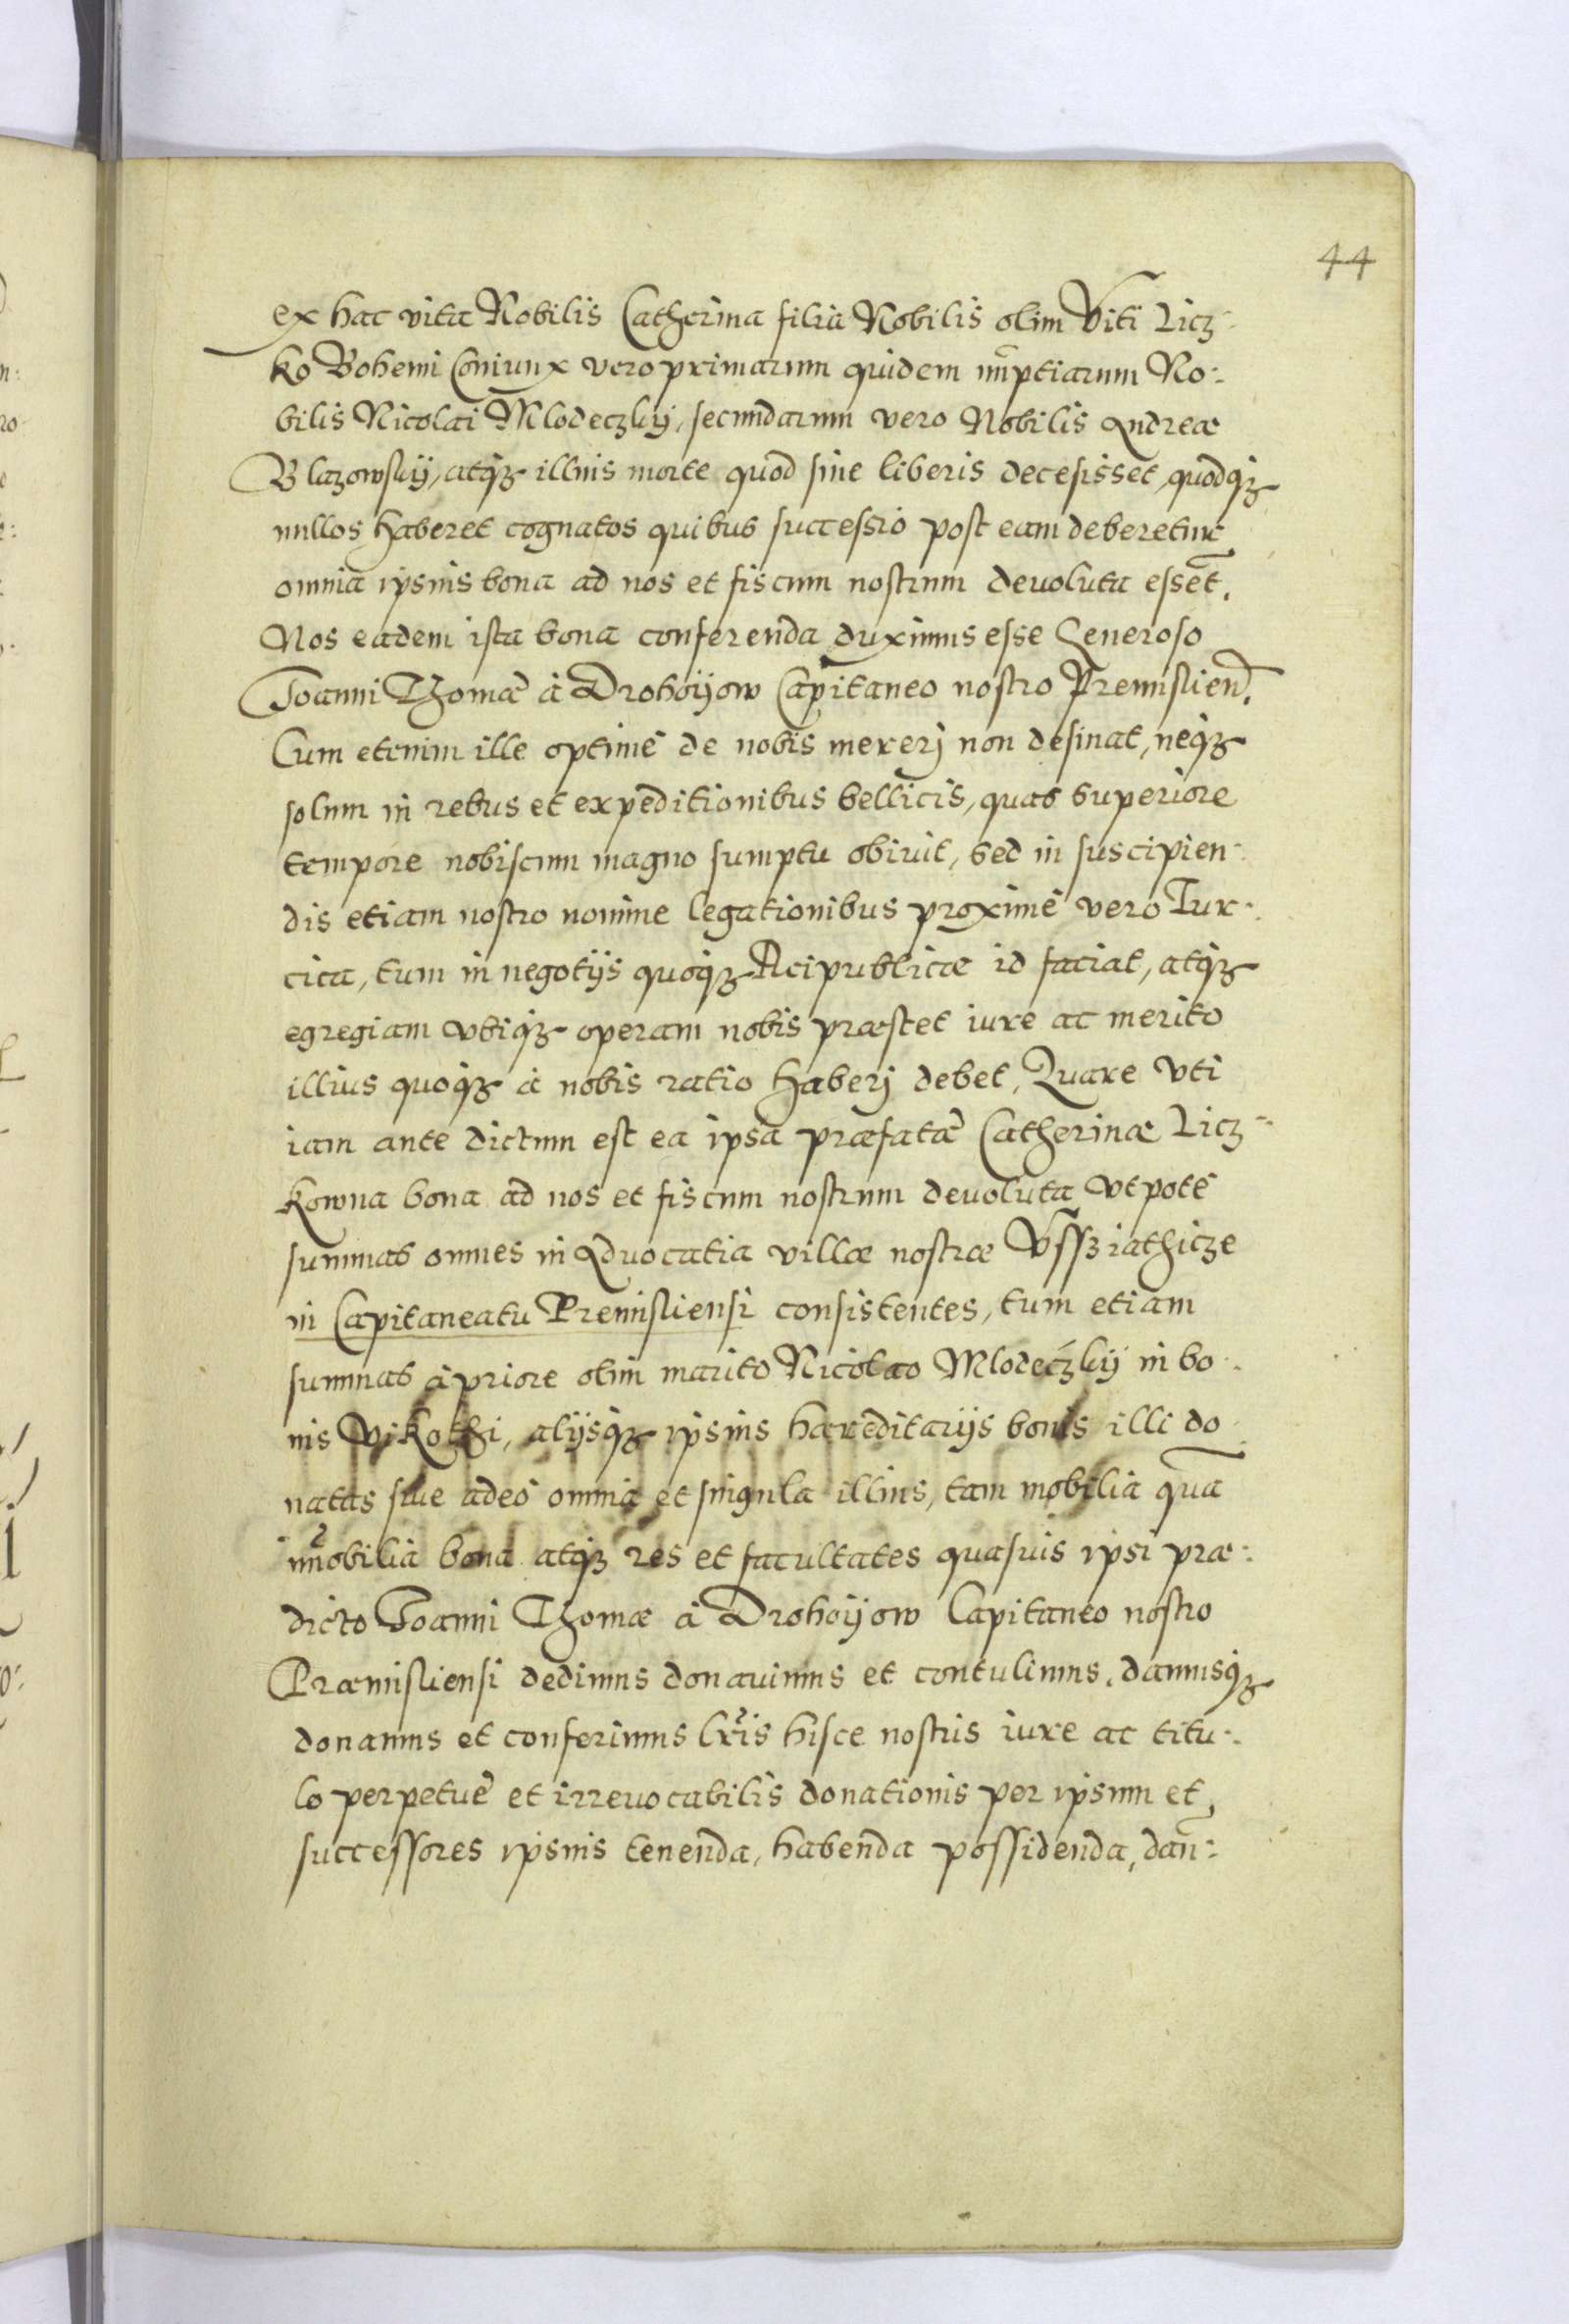 44
ex hac vita Nobilis Catherina filia Nobilis olim Viti Licz-
ko Bohemi Coniunx vero primarum quidem nuptiarum No-
bilis Nicolai Mlodeczkÿ, secundarum vero Nobilis Andreæ
Blazowskÿ, atqꝫ illius morte quod sine liberis decesisset, quodqꝫ
nullos haberet cognatos quibus successio post eam deberetur
omnia ipsius bona ad nos et fiscum nostrum devoluta essēt.
Nos eadem ista bona conferenda duximus esse Generoso
Joanni Thomæ à Drohoÿow Capitaneo nostro Premislien̄.
Cum etenim ille optimè de nobis mererj non desinat, neqꝫ
solum in rebus et expeditionibus bellicis, quas superiore
tempore nobiscum magno sumptu obivit, sed in suscipien-
dis etiam nostro nomine legationibus proximè vero Tur-
cica, tum in negotijs quoqꝫ Reipublicæ id faciat, atqꝫ
egregiam vbiqꝫ operam nobis præstet iure ac merito
illius quoqꝫ à nobis ratio haberj debet, Quare vti
iam ante dictum est ea ipsa præfatæ Catherinæ Licz-
kowna bona ad nos et fiscum nostrum devoluta vtpotè
summas omnes in Advocatia villæ nostræ Vssziathicze
in Capitaneatu Premisliensi consistentes, tum etiam
summas à priore olim marito Nicolao Mlodeczkÿ in bo-
nis Wikothi, alijsqꝫ ipsius hæreditarijs bonis illi do
natas sive adeò omnia et singula illius, tam mobilia quā
im̄obilia bona atqꝫ res et facultates quasvis ipsi præ-
dicto Joanni Thomæ à Drohoÿow Capitaneo nostro
Præmisliensi dedimus donavimus et contulimus, damusqꝫ
donamus et conferimus lr̄is hisce nostris iure ac titu-
lo perpetuè et irrevocabilis donationis per ipsum et
successores ipsius tenenda, habenda possidenda, dan̄-